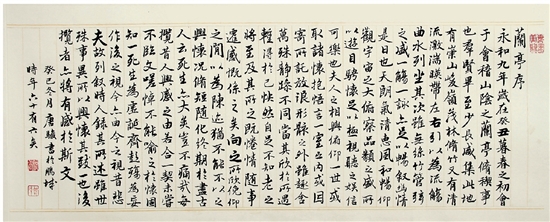 蘭亭序
永和九年歲在癸丑暮春之初會
于會稽山陰之蘭亭脩稧事
也羣賢畢至少長咸集此地
有崇山峻領茂林脩竹又有清
流激湍暎帶左右引以為流觴
曲水列坐其次雖無絲竹管弦
之盛一觴一詠亦足以暢敘幽情
是日也天朗氣清惠風和暢仰
觀宇宙之大俯察品類之盛所
以遊目騁懷足以極視聽之娛信
可樂也夫人之相與俯仰一世或
取諸懷抱悟言一室之內或因
寄所託放浪形骸之外雖趣舍
萬殊靜躁不同當其欣於所遇
暫得於己怏然自足不知老之
將至及其所之既惓情隨事
遷感慨係之矣向之所欣俛仰
之間以為陳迹猶不能不以之
興懷況脩短隨化終期於盡古
人云死生亦大矣豈不痛哉每
攬昔人興感之由若合一契未嘗
不臨文嗟悼不能喻之於懷固
知一死生為虛誕齊彭殤為妄
作後之視今亦由今之視昔悲
夫故列敘時人錄其所述雖世
殊事異所以興懷其致一也後之
攬者亦將有感於斯文
癸巳冬月唐書於鵬城
時年六十有六矣